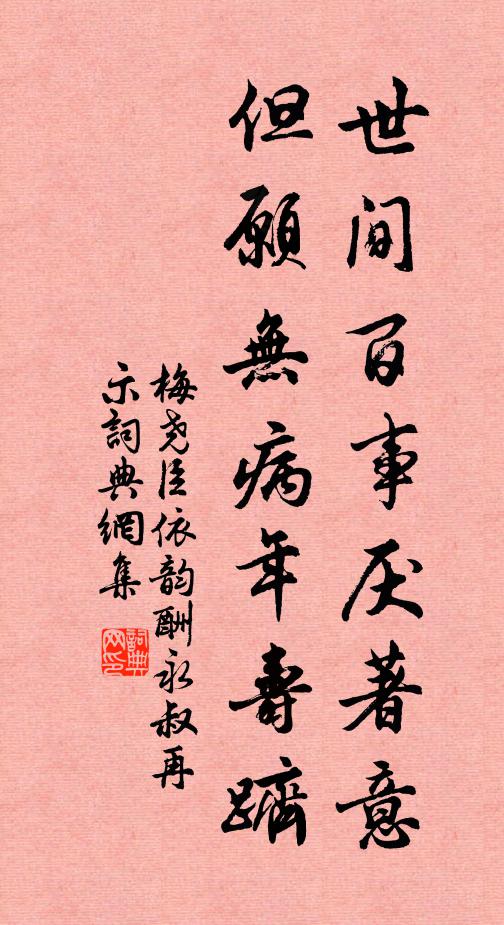 世间百事厌著意
但願無病年壽躋
梅尧臣依韵酬永叔再
示詞典網集
詞典網印